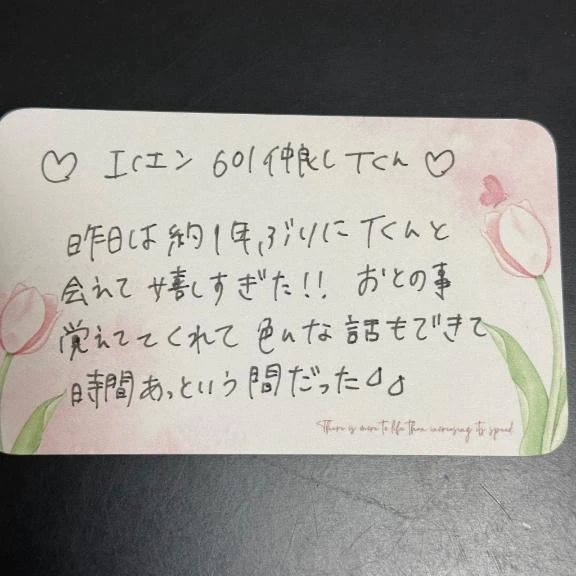 ♡ エレエン 601 仲良し Tくん ♡
昨日は約1年ぶりにTくんと
会えて嬉しすぎた!! おとの事
覚えててくれて色んな話もできて
時間あっという間だった
There is more to life than increasing its speed